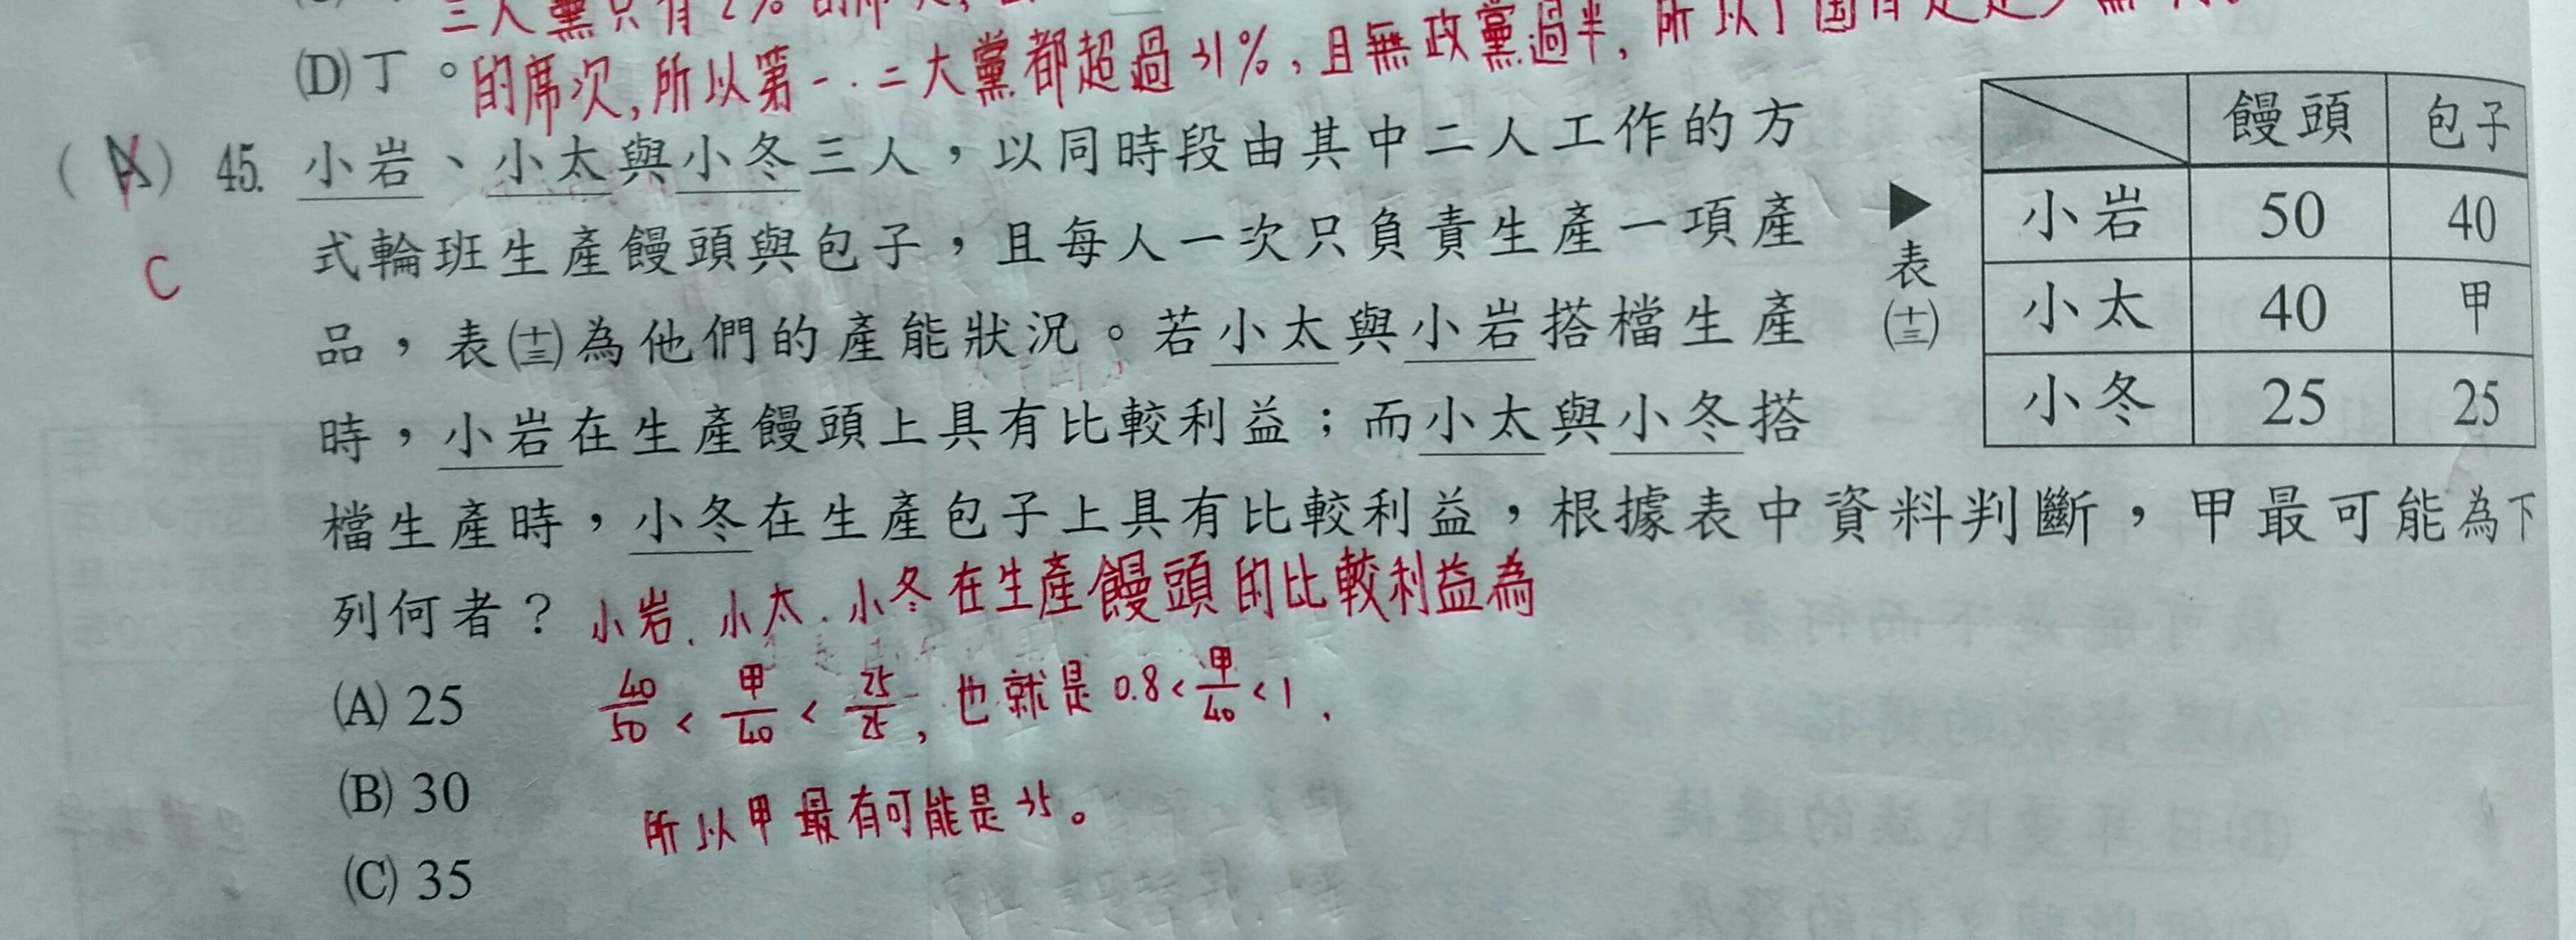 三人黨只有2%的席次,
(D)丁。的席次,所以第一.二大黨都超過31%,且無政黨過半,所以丁國
(A) 45. 小岩、小太與小冬三人,以同時段由其中二人工作的方
C 式輪班生產饅頭與包子,且每人一次只負責生產一項產
品,表(十三)為他們的產能狀況。若小太與小岩搭檔生產
時,小岩在生產饅頭上具有比較利益;而小太與小冬搭
檔生產時,小冬在生產包子上具有比較利益,根據表中資料判斷,甲最可能為下
列何者? 小岩、小太.小冬在生產饅頭的比較利益為
(A) 25 40/50 < 甲/40 < 25/25, 也就是 0.8 < 甲/40 < 1,
(B) 30 所以甲最有可能是35。
(C) 35
▶表(十三)
饅頭 包子
小岩 50 40
小太 40 甲
小冬 25 25